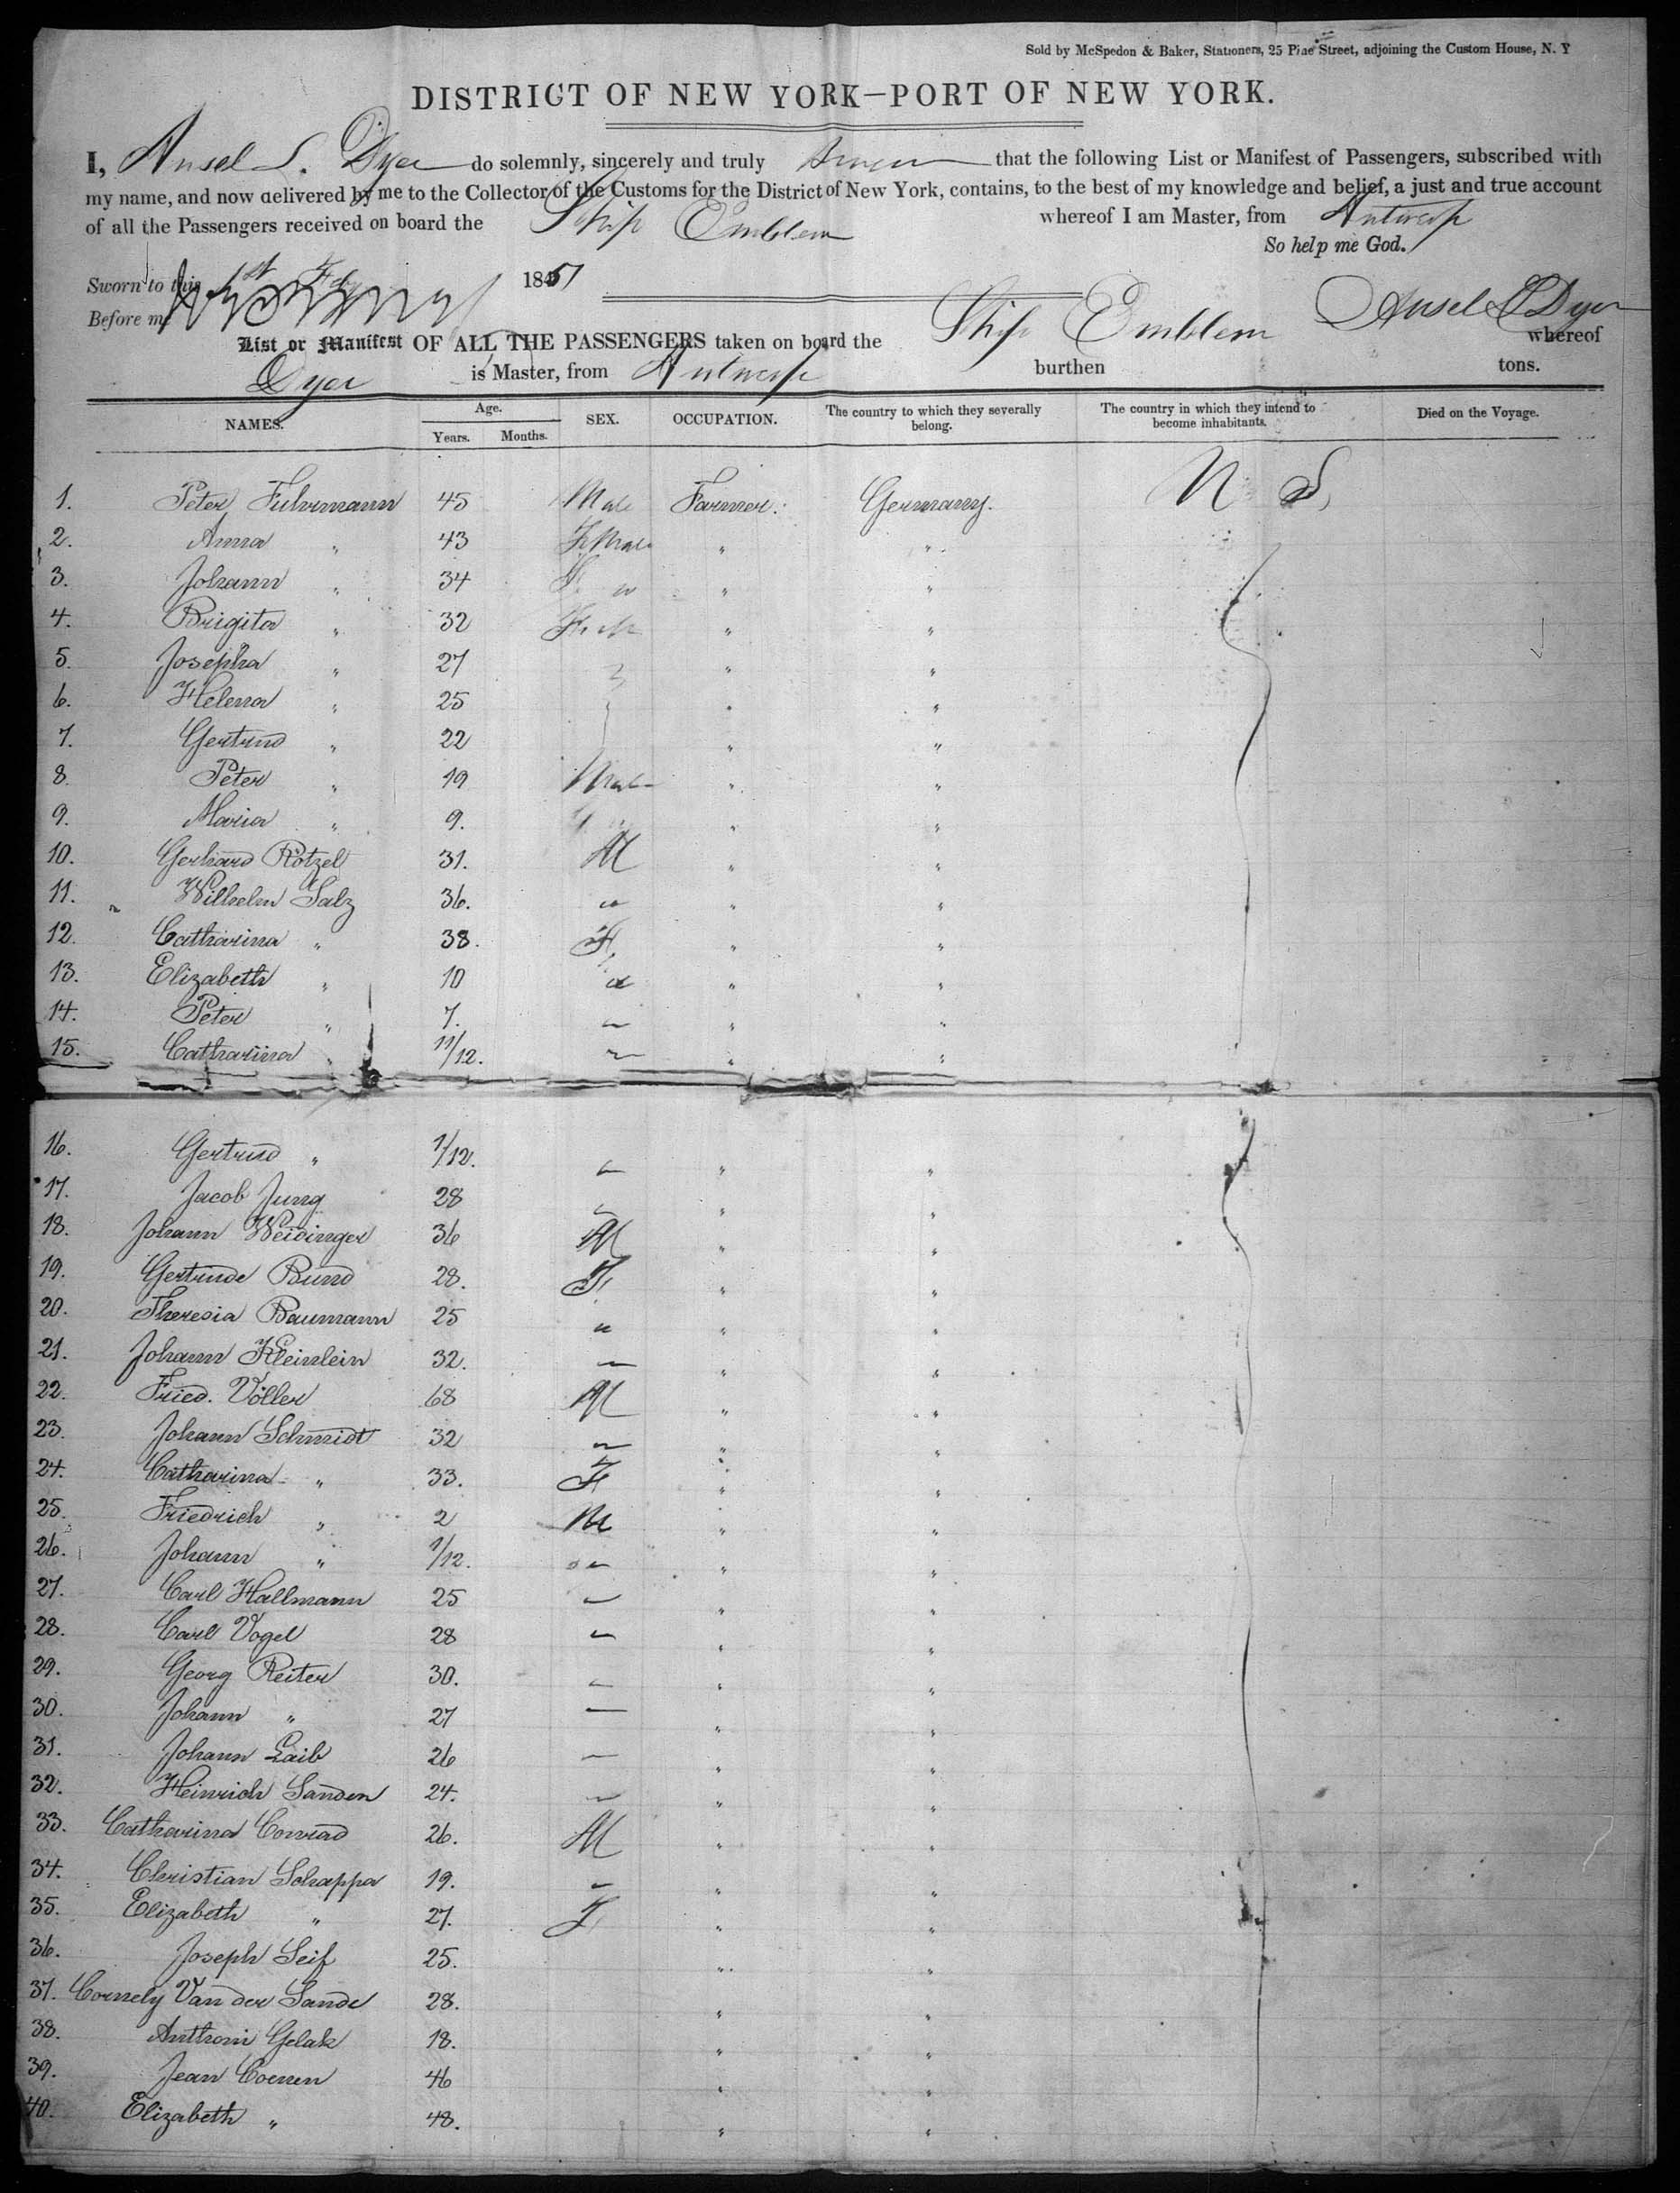 Sold by McSpedon & Baker, Stationers, 25 Pine Street, adjoining the Custom House, N. Y
DISTRICT OF NEW YORK—PORT OF NEW YORK.
I, Ansel L. Dyer do solemnly, sincerely and truly swear that the following List or Manifest of Passengers, subscribed with
my name, and now delivered by me to the Collector of the Customs for the District of New York, contains, to the best of my knowledge and belief, a just and true account
of all the Passengers received on board the Ship Emblem whereof I am Master, from Antwerp
So help me God.
Sworn to this 1st Feby 1851
Before me Ansel L Dyer
List or Manifest OF ALL THE PASSENGERS taken on board the Ship Emblem whereof
Dyer is Master, from Antwerp burthen tons.
NAMES. Age. Years. Months. SEX. OCCUPATION. The country to which they severally belong. The country in which they intend to become inhabitants. Died on the Voyage.
1. Peter Fuhrmann 45 Male Farmer. Germany. U S,
2. Anna " 43 Female " "
3. Johann " 34 " "
4. Brigita " 32 " "
5. Josepha " 27 " "
6. Helena " 25 " "
7. Gertrud " 22 " "
8. Peter " 19 Male " "
9. Maria " 9. " "
10. Gerhard Rötzel 31. M " "
11. Wilhelm Salz 36. " " "
12. Catharina " 38. F. " "
13. Elizabeth " 10 " " "
14. Peter " 7. " " "
15. Catharina " 11/12. " " "
16. Gertrud " 1/12. " " "
17. Jacob Jung 28 " " "
18. Johann Weisinger 36 M " "
19. Gertrude Bund 28. F. " "
20. Theresia Baumann 25 " " "
21. Johann Kleinlein 32. " " "
22. Fried. Völler 68 M " "
23. Johann Schmidt 32 " " "
24. Catharina " 33. F " "
25. Friedrich " 2 M " "
26. Johann " 1/12. " " "
27. Carl Hallmann 25 " " "
28. Carl Vogel 28 " " "
29. Georg Reiter 30. " " "
30. Johann " 27 " " "
31. Johann Laib 26 " " "
32. Heinrich Sanden 24. " " "
33. Catharina Conrad 26. M " "
34. Christian Schappa 19. " " "
35. Elizabeth " 27. F " "
36. Joseph Seif 25. " "
37. Cornely Van der Sande 28. " "
38. Anthoni Gelak 18. " "
39. Jean Coenen 46 " "
40. Elizabeth " 48. " "